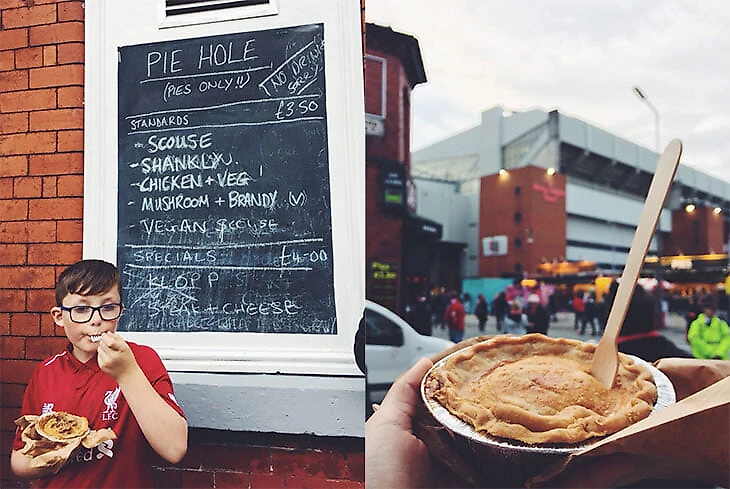 PIE HOLE
(PIES ONLY!!)
NO DRINKS
SORRY
£3.50
STANDARDS
- SCOUSE
- SHANKLY
- CHICKEN + VEG
- MUSHROOM + BRANDY (V)
VEGAN SCOUSE
SPECIALS £4.00
KLOPP
STEAK + CHEESE
L.F.C.